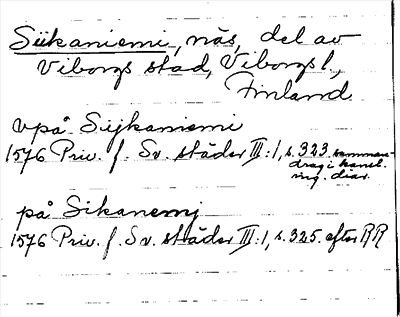 Siikaniemi, näs, del av
Viborgs stad, Viborgs l.,
Finland
vpå Sijkaniemi
1576 Priv. f. Sv. städer III:1, s. 323 samman-
drag i kansl.
reg. diar.
på Sikanemj
1576 Priv. f. Sv. städer III:1, s. 325. efter RR